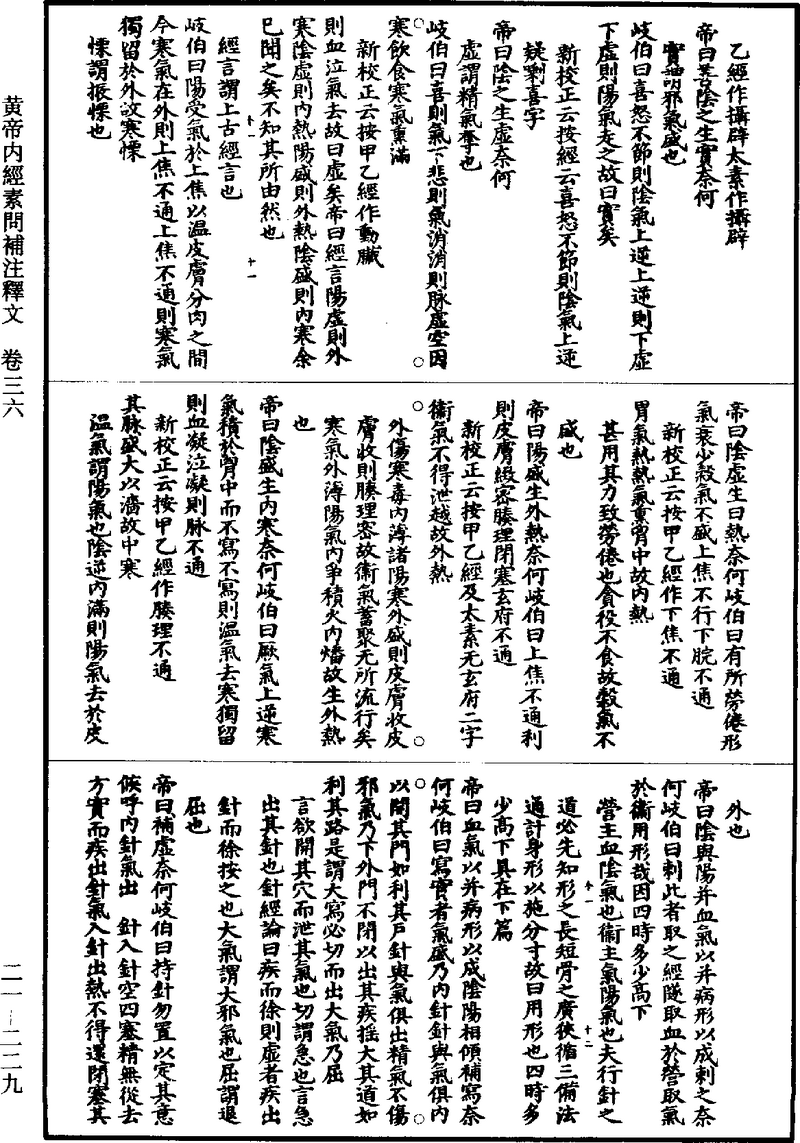 乙經作攝辟太素作攝辟
帝曰善陰之生實奈何
實謂邪氣盛也
岐伯曰喜怒不節則陰氣上逆上逆則下虛
下虛則陽氣走之故曰實矣
新校正云按經云喜怒不節則陰氣上逆
疑剩喜字
帝曰陰之生虛奈何
虛謂精氣奪也
岐伯曰喜則氣下悲則氣消消則脉虛空因
寒飲食寒氣熏滿
新校正云按甲乙經作動臟
則血泣氣去故曰虛矣帝曰經言陽虛則外
寒陰虛則內熱陽盛則外熱陰盛則內寒余
已聞之矣不知其所由然也
經言謂上古經言也 十一
岐伯曰陽受氣於上焦以温皮膚分肉之間
今寒氣在外則上焦不通上焦不通則寒氣
獨留於外故寒慄
慄謂振慄也
帝曰陰虛生曰熱奈何岐伯曰有所勞倦形
氣衰少穀氣不盛上焦不行下脘不通
新校正云按甲乙經作下焦不通
胃氣熱熱氣熏胷中故內熱
甚用其力致勞倦也貪役不食故穀氣不
盛也
帝曰陽盛生外熱奈何岐伯曰上焦不通利
則皮膚緻密腠理閉塞玄府不通
新校正云按甲乙經及太素无玄府二字
衞氣不得泄越故外熱
外傷寒毒內薄諸陽寒外盛則皮膚收皮
膚收則腠理密故衞氣蓄聚无所流行矣
寒氣外薄陽氣內爭積火內燔故生外熱
也
帝曰陰盛生內寒奈何岐伯曰厥氣上逆寒
氣積於胷中而不寫不寫則温氣去寒獨留
則血凝泣凝則脉不通
新校正云按甲乙經作腠理不通
其脉盛大以濇故中寒
温氣謂陽氣也陰逆內滿則陽氣去於皮
外也
帝曰陰與陽并血氣以并病形以成刺之奈
何岐伯曰刺此者取之經隧取血於營取氣
於衞用形哉因四時多少高下
營主血陰氣也衞主氣陽氣也夫行針之
道必先知形之長短骨之廣狹循三備法
通計身形以施分寸故曰用形也四時多
少高下具在下篇
帝曰血氣以并病形以成陰陽相傾補寫奈
何岐伯曰寫實者氣盛乃內針針與氣俱內
以開其門如利其戶針與氣俱出精氣不傷
邪氣乃下外門不閉以出其疾揺大其道如
利其路是謂大寫必切而出大氣乃屈
言欲開其穴而泄其氣也切謂急也言急
出其針也針經論曰疾而徐則虛者疾出
針而徐按之也大氣謂大邪氣也屈謂退
屈也
帝曰補虛奈何岐伯曰持針勿置以定其意
候呼內針氣出 針入針空四塞精無從去
方實而疾出針氣入針出熱不得還閉塞其
黄帝内經素問補注釋文 卷三六
二一—二二九